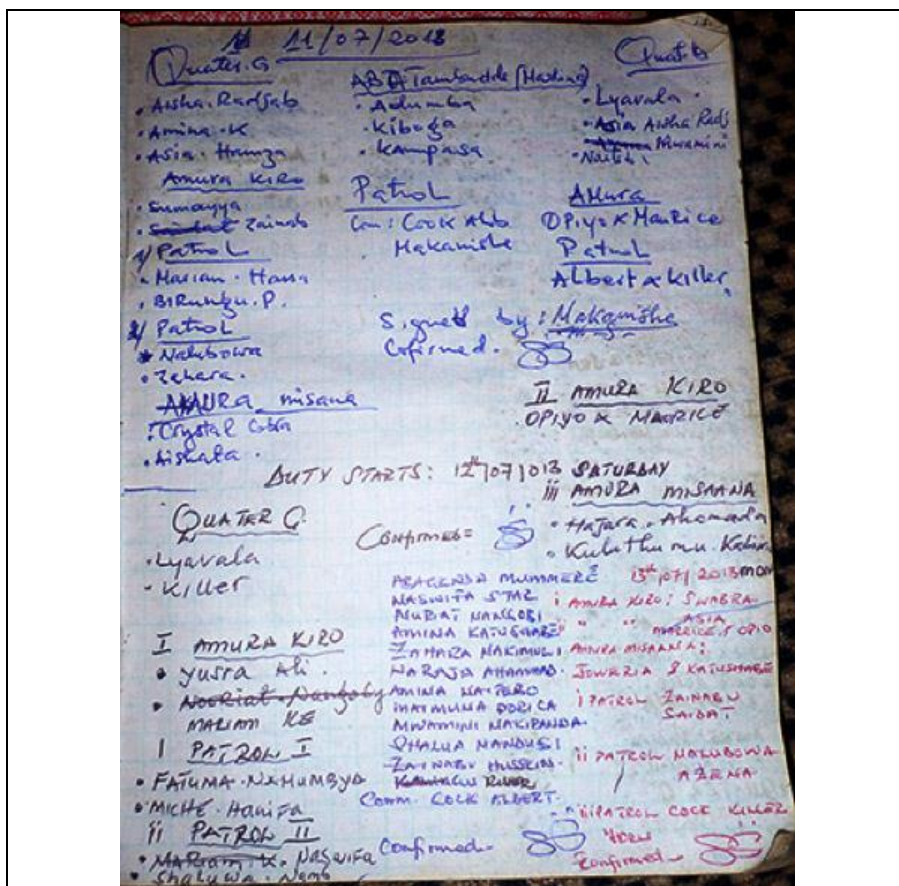 11/07/2013
Quater. G
• Aisha. Radjab
• Amina. K
• Asia. Hamza
Amura Kiro
• Sumayya
• Zainab
1/ Patrol
• Mariam. Hawa
• BIRungu. P.
2/ Patrol
• Nakibowa
• Zahara.
AMURA misana
• Crystal Cobra
• Aishata.
ABTA Tambudde
• Adumba
• Kiboga
• Kampasa
Patrol
Com: Cook Alb
Makanishe
Signed by: Makanishe
Cofirmed.
Quat G
• Lyavala.
• Asia Aisha Radj
Mwamini
AMura
OPiyo & Maurice
Patrol
Albert & Killer
II AMURA KIRO
OPIYO & MAURICE
DUTY STARTS: 12th/07/013 SATURDAY
iii AMURA MISAANA
• Hajara. Ahamada
• Kuluthumu. Kabiir
QUATER G.
• Lyavala
• Killer
Confirmed =
I AMURA KIRO
• yusra Ali.
• Nooriat. Nangoby
MARIAM KE
I PATROL I
• FATUMA. NAMUMBYA
• MICHE. Hanifa
ii PATROL II
• MARIAM. K. NASWIFA
• Shaluwa. Namb
NASWITA STAR
NUBAT NANGOBI
AMINA KATUSHABE
ZAHARA NAKIMULI
AMINA NAIGERO
MAIMUNA DORICA
MWAMINI NAKIPANDA
SHALUA NANDUGI
ZAINABU HUSSEIN
Comm. COCK ALBERT.
Confirmed =
13th/07/2013 mon
i AMURA KIRO: SWABRA
" " ASIA
MAURICE & OPIO
AMURA MISAANA:
JUWERIA & KATUSHABE
i PATROL ZAINABU
SAIDAT
ii PATROL NAKUBOWA
AZENA
iii PATROL COCK KILLER
Confirmed =